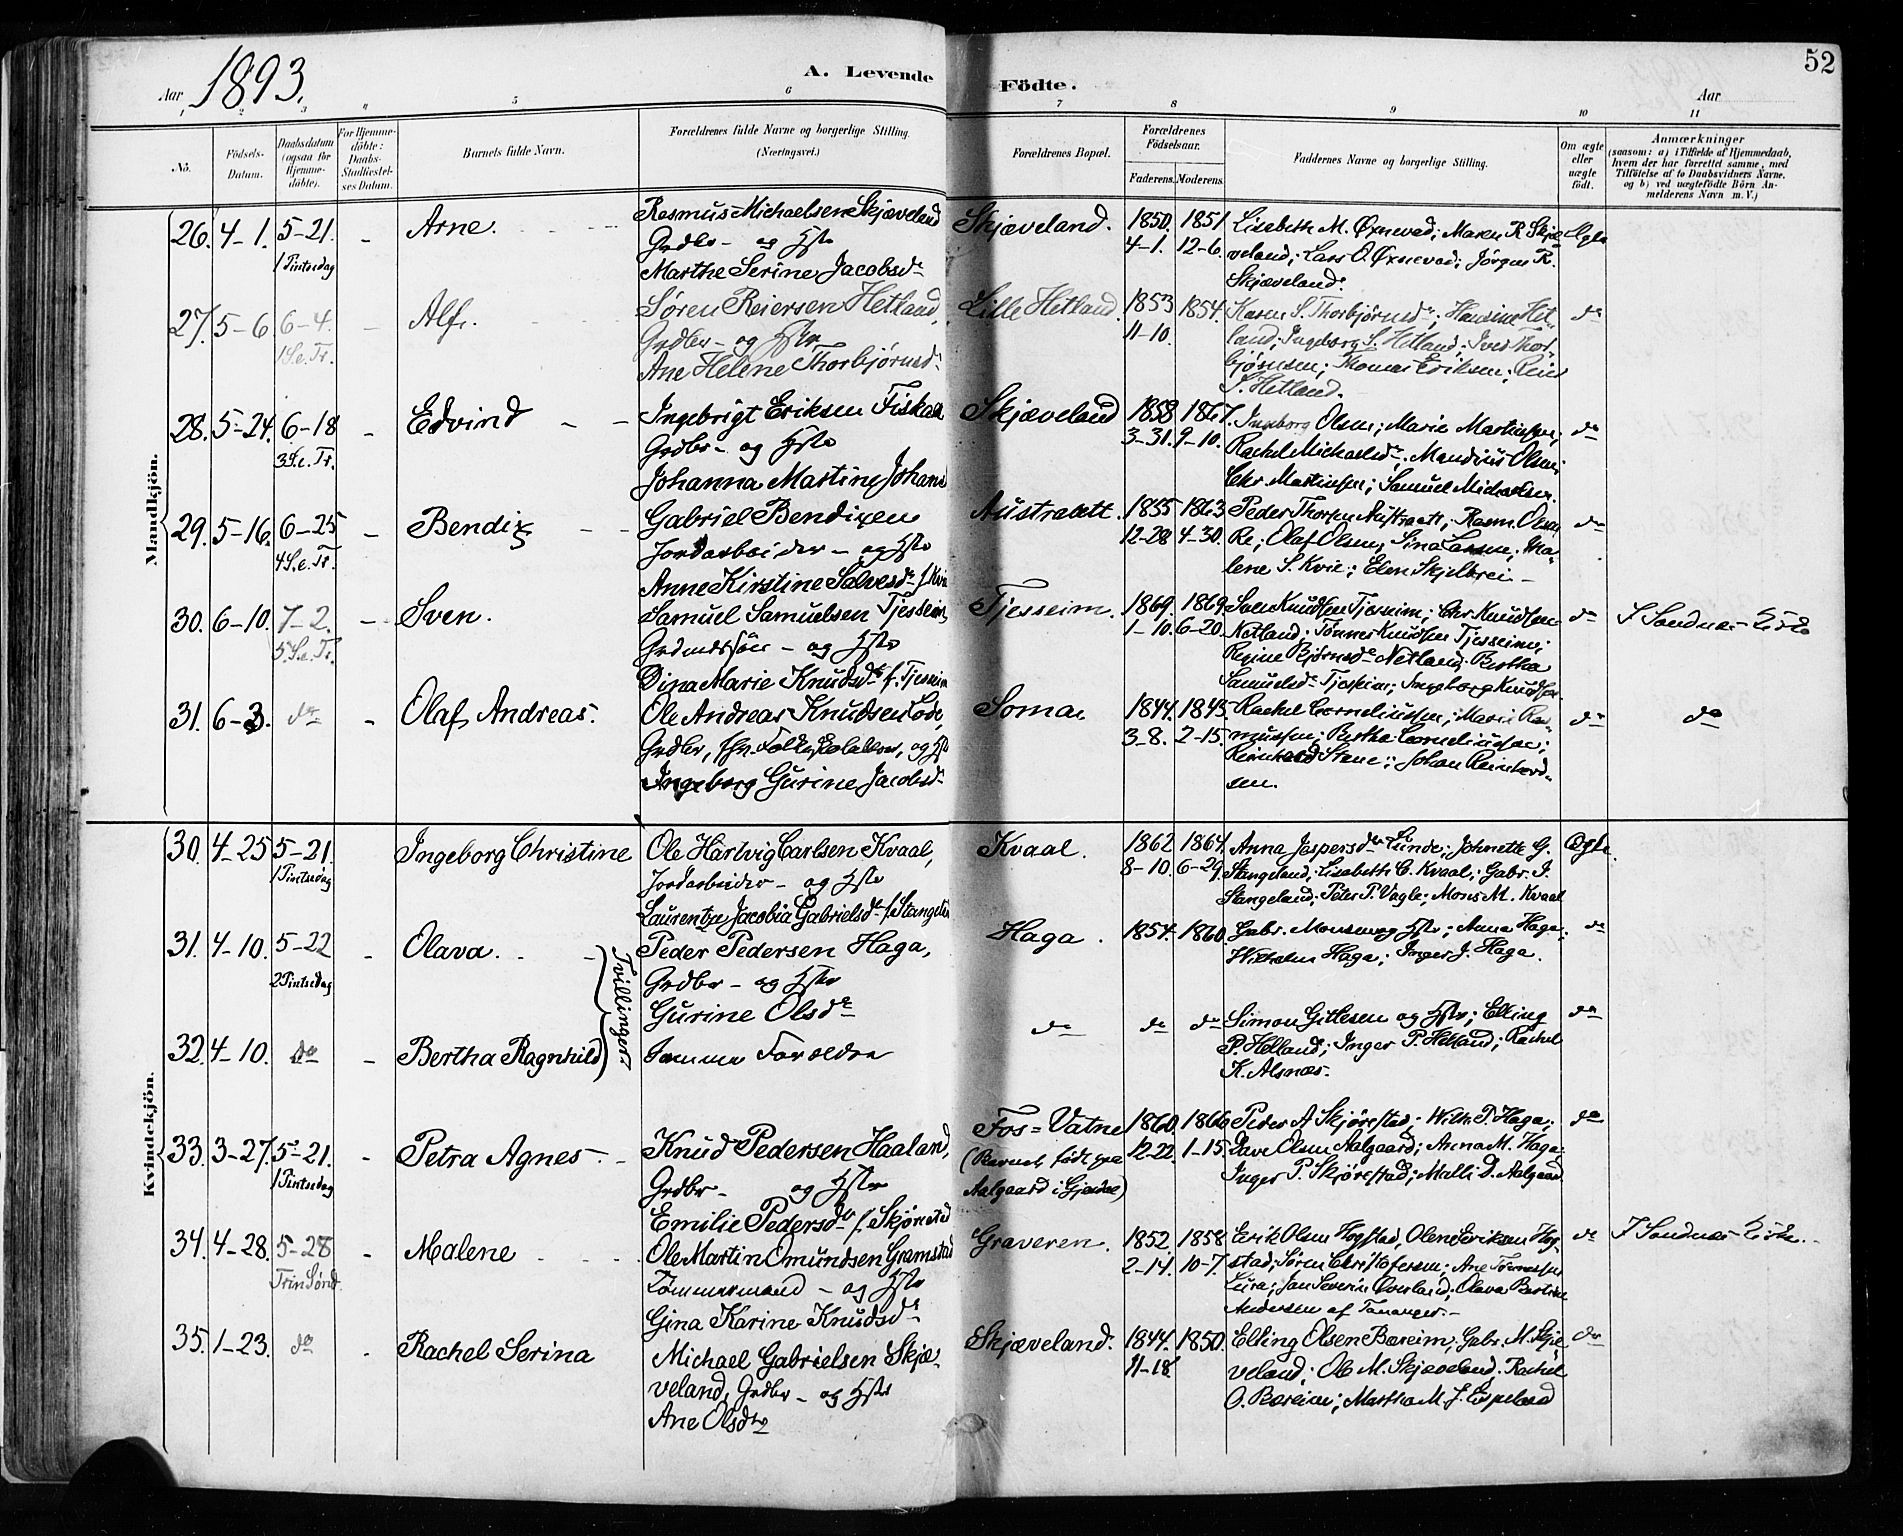 52
Aar 1893.
A. Levende
Födte.
Aar
1 2 3 4 5 6 7 8 9 10 11
No.
Födsels-Datum.
Daabsdatum (ogsaa for Hjemme-döbte).
For Hjemme-döbte: Daabs-Stadfæstel-ses Datum.
Barnets fulde Navn.
Forældrenes fulde Navne og borgerlige Stilling.
(Næringsvei.)
Forældrenes Bopæl.
Forældrenes Födselsaar.
Faderens.
Moderens.
Faddernes Navne og borgerlige Stilling.
Om ægte eller uægte födt.
Anmærkninger
(saasom: a) i Tilfælde af Hjemmedaab, hvem der har forrettet samme, med Tilföielse af to Daabsvidners Navne, og b) ved uægtefödte Börn An-melderens Navn m. V.)
Mandkjön.
26. 4-1. 5-21. - Arne. Rasmus Michaelsen Skjæveland Skjæveland. 1850. 1851 Lisabeth M. Øxnevad; Maren R. Skjæ- Ægte
1 Pintsedag Grdbr - og Hstr 4-1. 12-6. veland; Lars O. Øxnevad; Jørgen R.
Marthe Serine Jacobsdr Skjæveland.
27. 5-6 6-4. - Alf. Søren Reiersen Hetland, Lille Hetland. 1853 1854. Karen S. Thorbjørnsdr; Hansine Het- do
1 S. e. Tr. Grdbr - og Hstr 11-10. land; Ingeborg S. Hetland; Iver Thor-
Ane Helene Thorbjørnsdr. bjørnsen; Thomas Eriksen;
S. Hetland.
28. 5-24. 6-18 - Edvind Ingebrigt Eriksen Skjæveland 1858 1867. Ingeborg Olsen; Marie Martinsen; do
3 S. e. Tr. Grdbr - og Hstr 3-31. 9-10. Rachel Michaelsdr. Mandius Olsen;
Johanna Martine Johans Chr. Martinsen; Samuel Michaelsen.
29. 5-16. 6-25 - Bendix Gabriel Bendixen Austraatt. 1855 1863 Peder Thorsen Austraatt; Rasm. Olsen do
4 S. e. Tr. Jordarbeider - og Hstr 12-28 4-30. Re; Olaf Olsen; Sina Larsen; Ma-
Anne Kirstine Salvesdr f. Kvie lene S. Kvie; Elen Skjelbrei -
30. 6-10. 7-2. - Sven. Samuel Samuelsen Tjesseim Tjesseim. 1869. 1869. Sven Knudsen Tjesseim; Chr Knudsen do I Sandnes Kirke
5 S. e. Tr. Grdmandssøn - og Hstr 1-10. 6-20. Netland; Tønnes Knudsen Tjesseim;
Dina Marie Knudsdr f. Tjesseim Regine Bjørnsdr Netland; Bertha
Samuelsdr Tjesseim; Ingeborg Knudsen
31. 6-3. do - Olaf Andreas. Ole Andreas Knudsen Lode, Soma 1844. 1845. Rachel Corneliussen; Marie Ras- do do
Grdbr, og Hstr 3-8. 2-15. mussen; Bertha Corneliussen;
Ingeborg Gurine Jacobsdr. Reinhard Stene; Johan Reinhard-
sen.
Kvindekjön.
30. 4-25 5-21. Ingeborg Christine Ole Hartvig Carlsen Kvaal, Kvaal. 1862 1864. Anna Jespersdr Lunde; Johnette G. Ægte.
1 Pintsedag Jordarbeider - og Hstr 8-10. 6-29. Stangeland; Lisabeth C. Kvaal; Gabr. I.
Laurentza Jacobia Gabrielsdr f. Stangeland Stangeland; Peter P. Vagle; Mons M. Kvaal
31. 4-10. 5-22 - Olava. Peder Pedersen Haga, Haga. 1854. 1860. Gabr. Monsen og Hstr; Anna Haga; do
2 Pintsedag Grdbr - og Hstr Wilhelm Haga; Inger J. Haga.
Gurine Olsdr
Tvillinger
32. 4-10. do - Bertha Ragnhild Samme Forældre do do do Simon Gitlesen og Hstr; Elling do
P. Helland; Inger P. Helland; Rachel
K. Alsnæs.
33. 3-27. 5-21. - Petra Agnes. Knud Pedersen Haaland, Fos=Vatne 1860. 1866 Peder A Skjørestad; Wilh. P. Haga; do
1 Pintsedag Grdbr - og Hstr (Barnet født paa 12-22. 1-15. Dave Olsen Aalgaard; Anna M. Haga;
Emilie Pedersdr f. Skjørestad Aalgaard i Gjesdal) Inger P. Skjørestad; Malli D. Aalgaard
34. 4-28. 5-28 - Malene Ole Martin Omundsen Gramstad Graveren. 1852. 1858. Erik Olsen Hogstad, Olene Eriksen Hog- do I Sandnes Kirke.
Trin Sønd. Tømmermand - og Hstr 2-14. 10-7. stad; Søren Christofersen; Ane Tønnessen
Gina Karine Knudsdr Lura; Jan Severin Øverland; Olava Bertine
Andersen af Tananger.-
35. 1-23. do - Rachel Serina Michael Gabrielsen Skjæ- Skjæveland. 1844. 1850. Elling Olsen Bæreim; Gabr. M. Skjæ- do
veland, Grdbr - og Hstr 11-18. veland; Ole M. Skjæveland; Rachel
Ane Olsdtr O. Bæreim; Martha M. J. Espeland